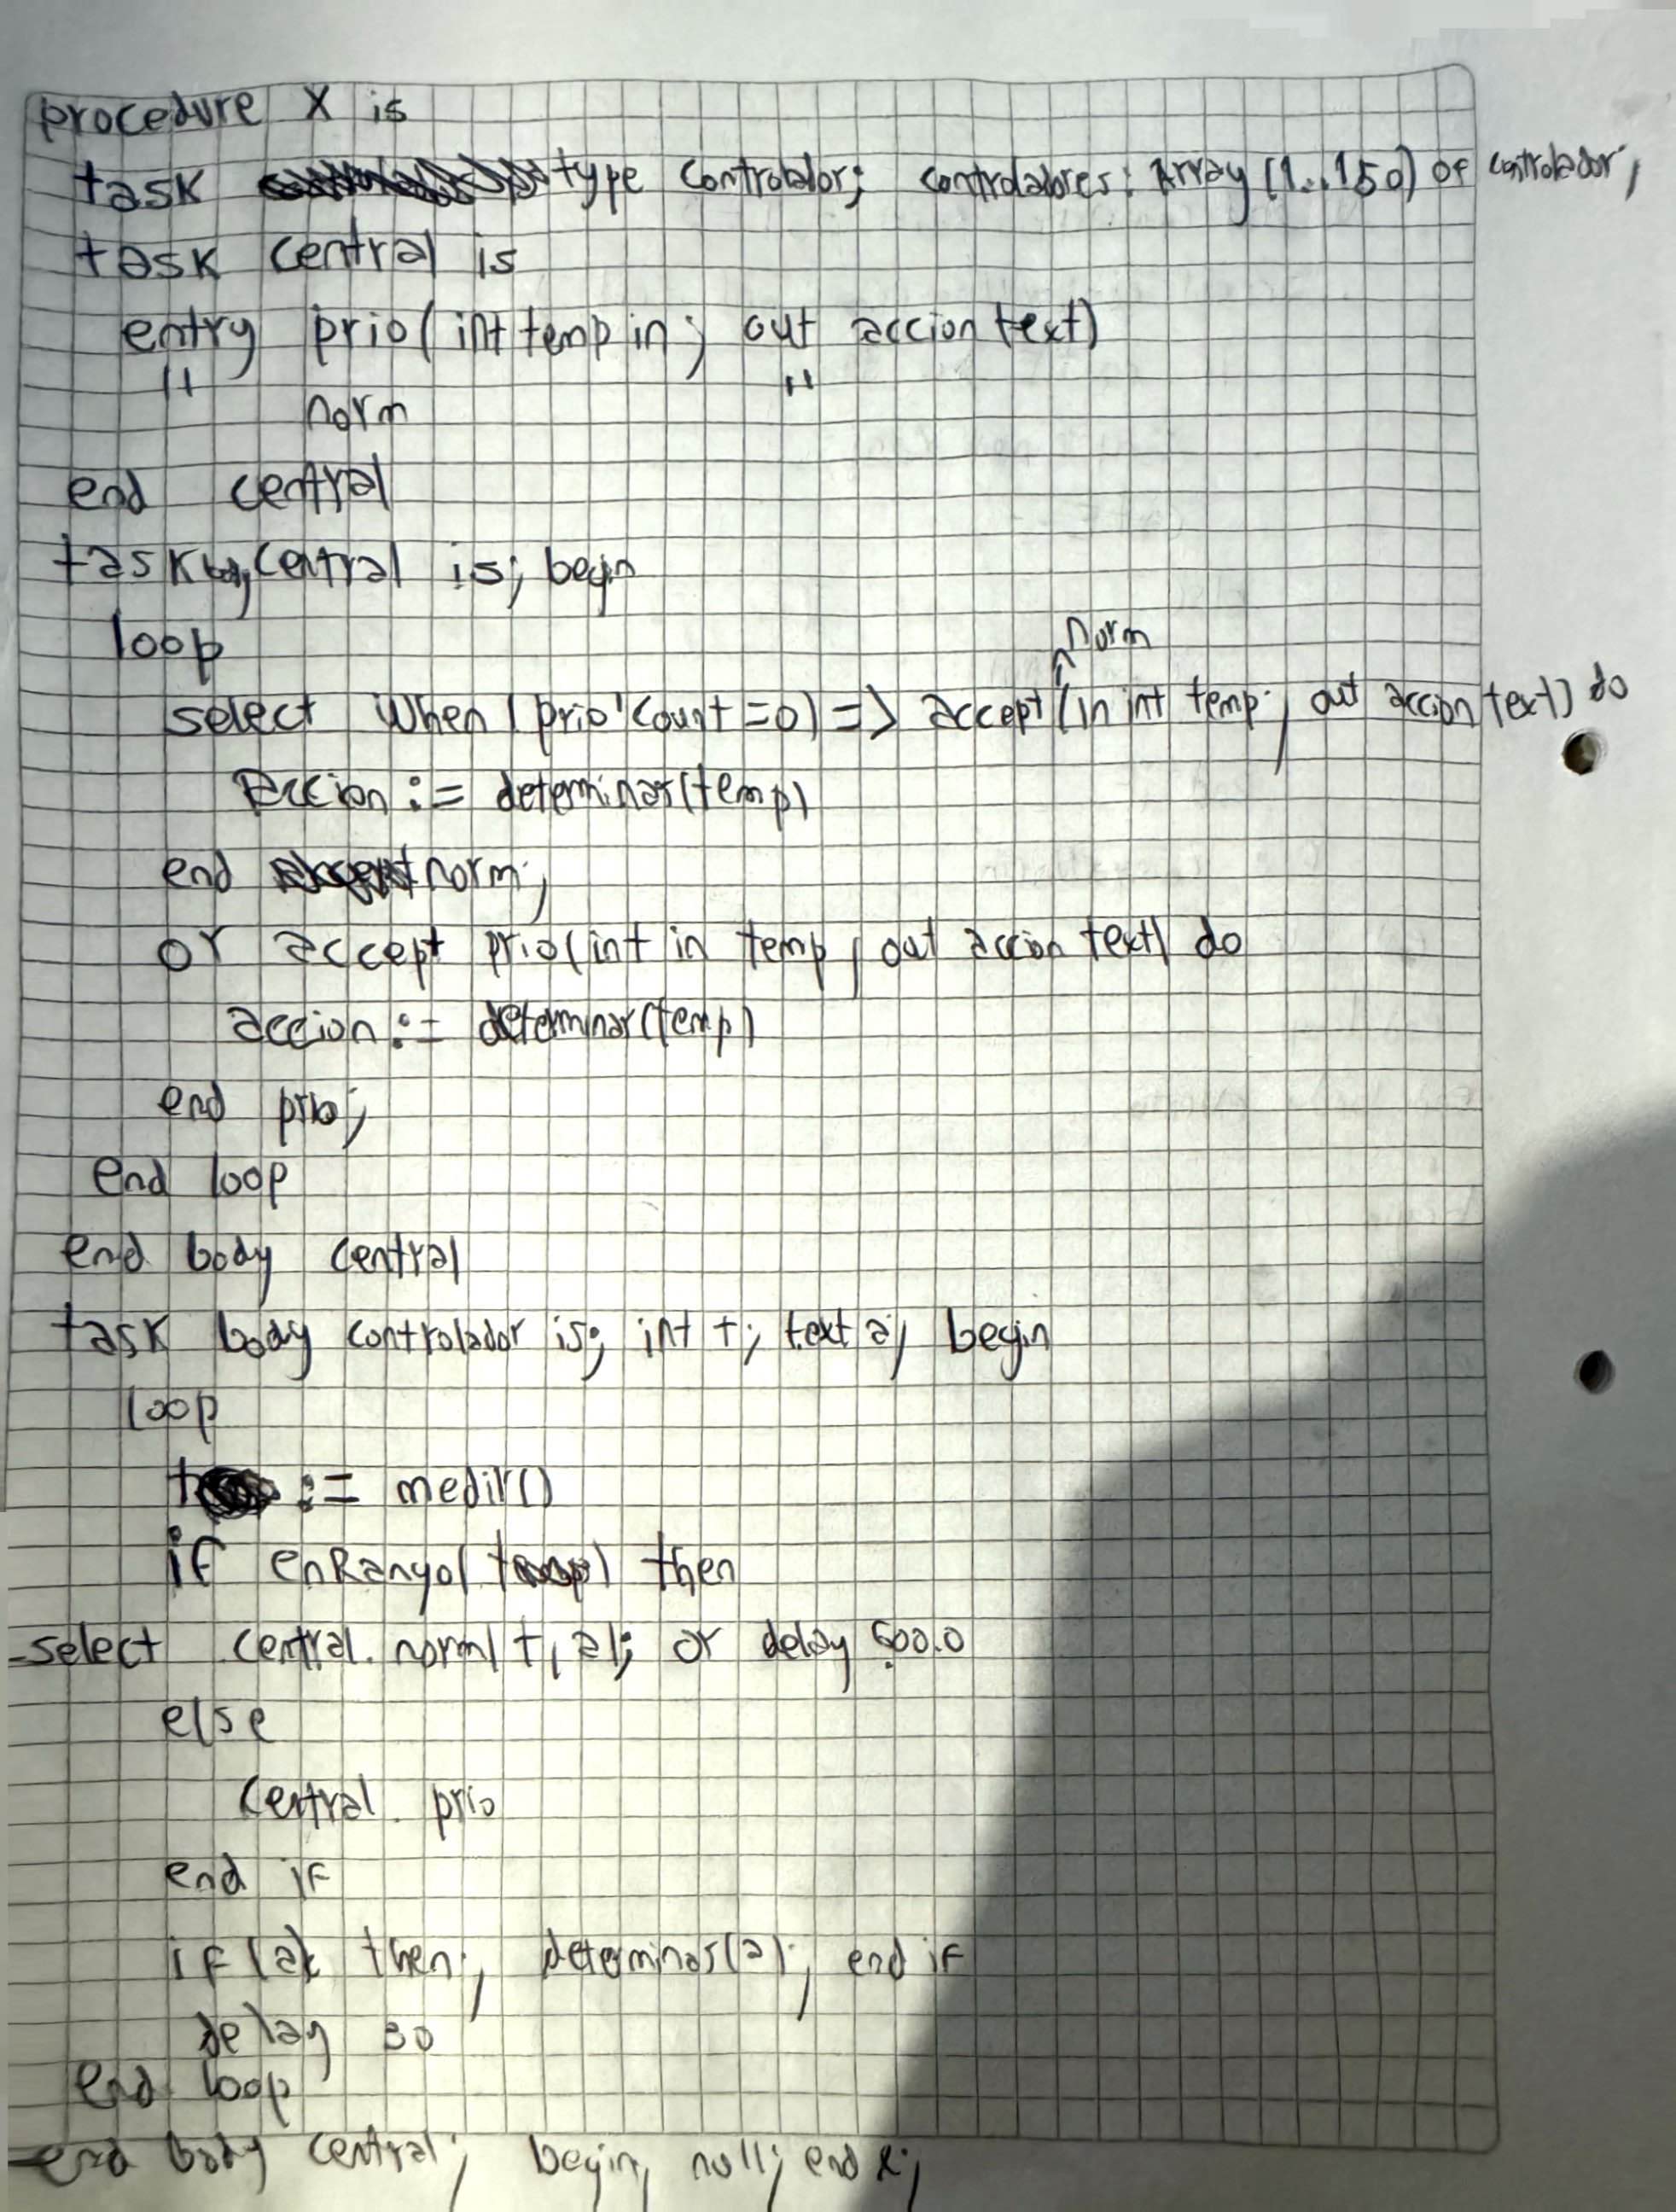 procedure X is
task type controlador; controladores: Array (1..150) of controlador;
task central is
entry prio(int temp in; out accion text)
" norm "
end central
task body central is; begin
loop
select when (prio'count=0) => accept norm (in int temp; out accion text) do
accion := determinar(temp)
end norm;
or accept prio(int in temp, out accion text) do
accion := determinar(temp)
end prio;
end loop
end body central
task body controlador is; int t; text a; begin
loop
t := medir()
if enRango(t) then
select central.norm(t,a); or delay 600.0
else
central.prio
end if
if (a) then; determinar(a); end if
delay 30
end loop
end body central; begin, null; end x;